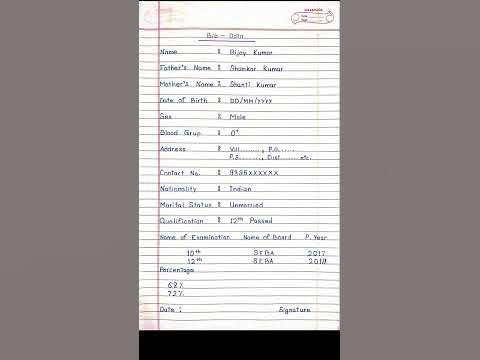 Bio - Data
Name : Bijay Kumar
Father's Name : Shankar Kumar
Mother's Name : Shanti Kumar
Date of Birth : DD/MM/YYYY
Sex : Male
Blood Grup : O+
Address : Vill......., P.O......
P.S......, Dist...... etc.
Contact No. : 9395XXXXXX
Nationality : Indian
Marital Status : Unmarried
Qualification : 12th Passed
Name of Examination Name of Board P. Year
10th SEBA 2017
12th SEBA 2019
Percentage
68%
72%
Date : Signature